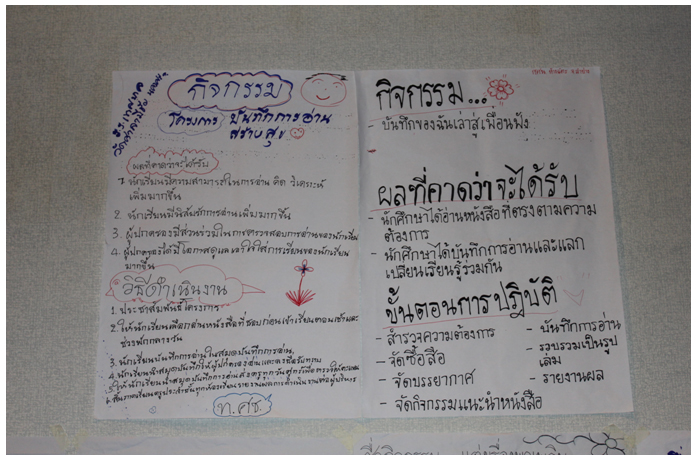 กิจกรรม
โครงการ บันทึกการอ่าน
สร้างสุข
ผลที่คาดว่าจะได้รับ
1. นักเรียนมีความสามารถในการอ่าน คิด วิเคราะห์
เพิ่มมากขึ้น
2. นักเรียนมีนิสัยรักการอ่านเพิ่มมากขึ้น
3. ผู้ปกครองมีส่วนร่วมในการตรวจสอบการอ่านของนักเรียน
4. ผู้ปกครองได้มีโอกาสดูแลเอาใจใส่การเรียนของนักเรียน
มากขึ้น
วิธีดำเนินงาน
1. ประชาสัมพันธ์โครงการ
2. ให้นักเรียนเลือกอ่านหนังสือที่ชอบก่อนเข้าเรียนตอนเช้าและ
ช่วงพักกลางวัน
3. นักเรียนบันทึกการอ่านในสมุดบันทึกการอ่าน
4. นักเรียนนำสมุดบันทึกให้ผู้ปกครองอ่านและลงชื่อรับทราบ
5. ให้นักเรียนนำสมุดบันทึกการอ่านส่งครูทุกวันศุกร์
ท.ศช.
กิจกรรม...
- บันทึกของฉันเล่าสู่เพื่อนฟัง
ผลที่คาดว่าจะได้รับ
- นักศึกษาได้อ่านหนังสือที่ตรงตามความ
ต้องการ
- นักศึกษาได้บันทึกการอ่านและแลก
เปลี่ยนเรียนรู้ร่วมกัน
ขั้นตอนการปฎิบัติ
- สำรวจความต้องการ
- จัดซื้อสื่อ
- จัดบรรยากาศ
- จัดกิจกรรมแนะนำหนังสือ
- บันทึกการอ่าน
รวบรวมเป็นรูป
เล่ม
- รายงานผล